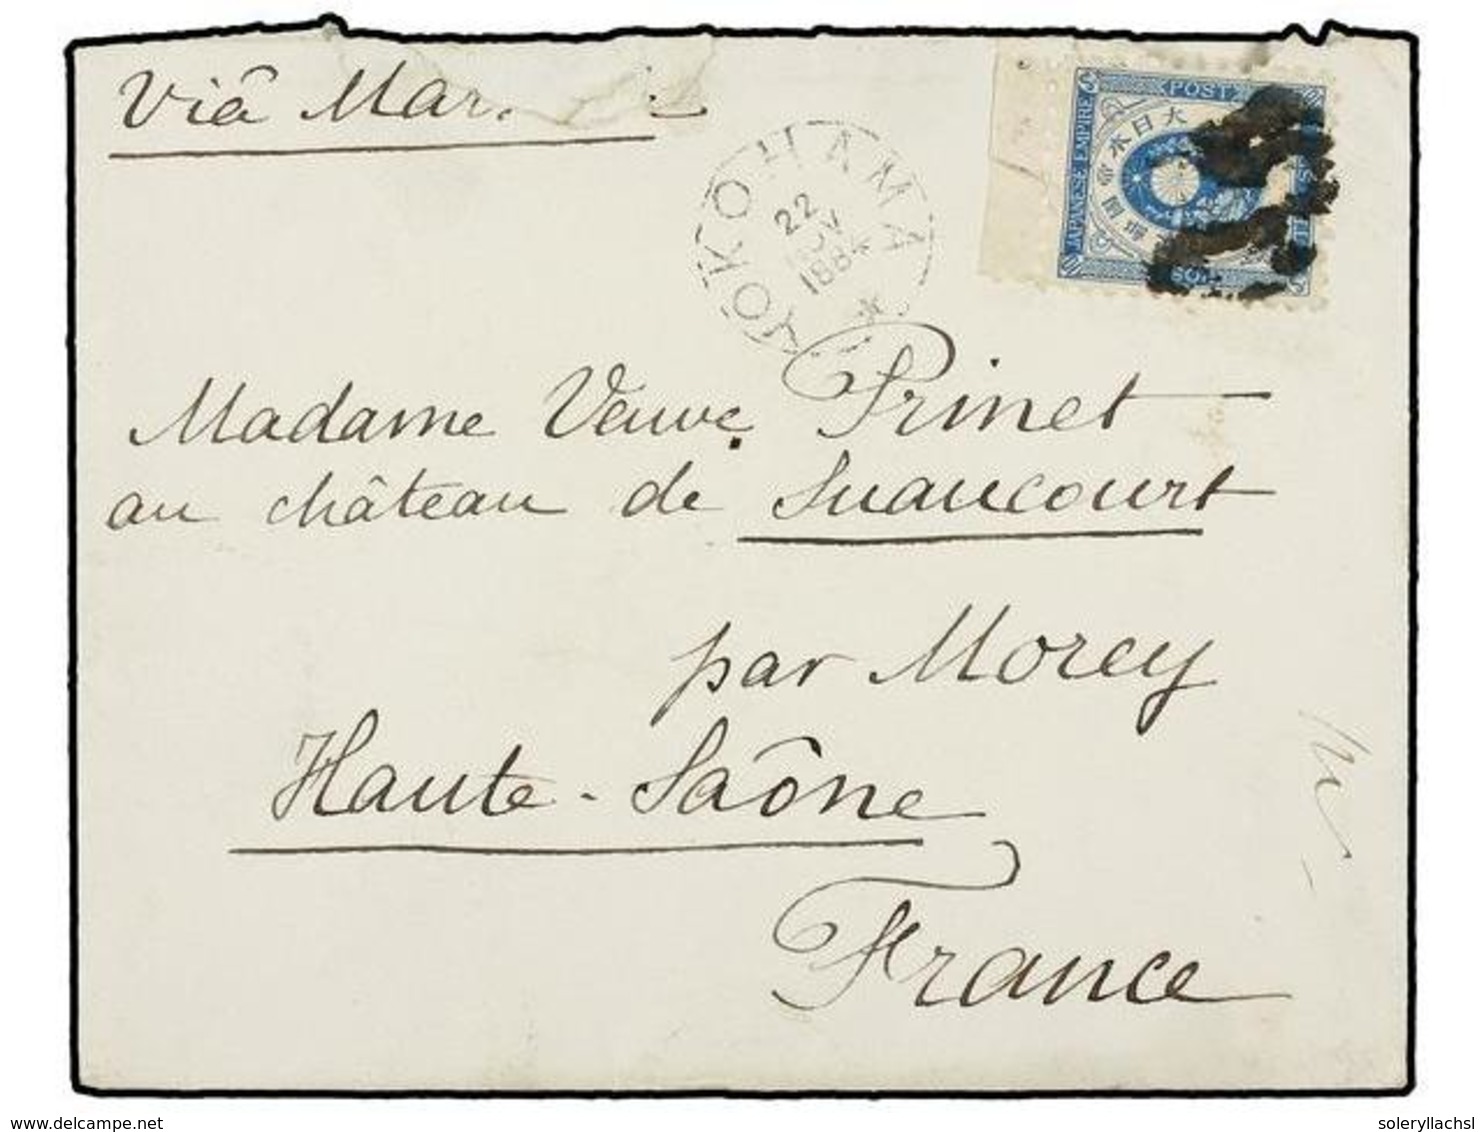 Viâ Mar
YOKOHAMA
22
NOV
1884
POST
JAPANESE EMPIRE
大日本帝国
Madame Veuve Prinet
au château de Suaucourt
par Morey
Haute-Saône
France
soleryllachsl